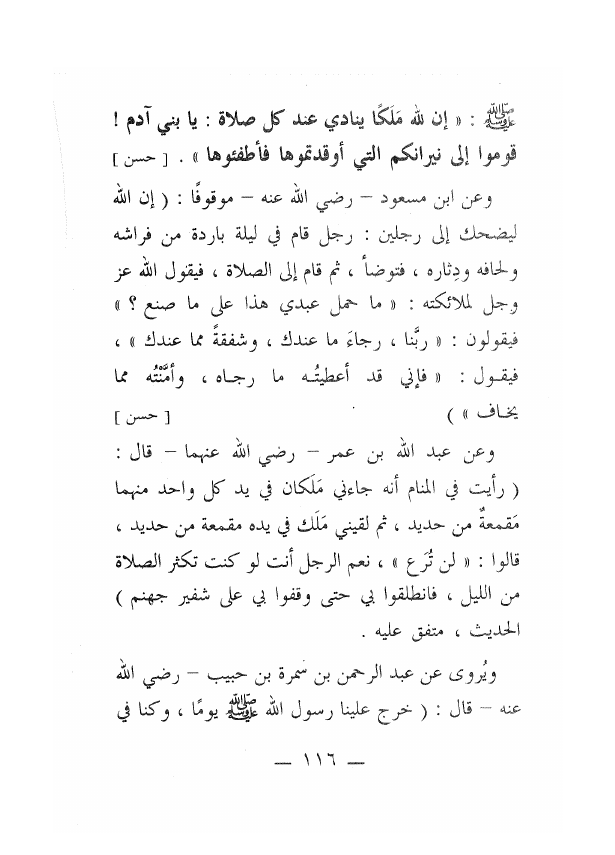 ﷺ : « إن لله مَلَكًا ينادي عند كل صلاة : يا بني آدم !
قوموا إلى نيرانكم التي أوقدتموها فأطفئوها » . [ حسن ]
وعن ابن مسعود – رضي الله عنه – موقوفًا : ( إن الله
ليضحك إلى رجلين : رجل قام في ليلة باردة من فراشه
ولحافه ودِثاره ، فتوضأ ، ثم قام إلى الصلاة ، فيقول الله عز
وجل لملائكته : « ما حمل عبدي هذا على ما صنع ؟ »
فيقولون : « ربَّنا ، رجاءَ ما عندك ، وشفقةً مما عندك » ،
فيقول : « فإني قد أعطيتُه ما رجاه ، وأمَّنْتُه مما
يخاف » ) [ حسن ]
وعن عبد الله بن عمر – رضي الله عنهما – قال :
( رأيت في المنام أنه جاءني مَلَكان في يد كل واحد منهما
مَقمعةٌ من حديد ، ثم لقيني مَلَك في يده مقمعة من حديد ،
قالوا : « لن تُرَع » ، نعم الرجل أنت لو كنت تكثر الصلاة
من الليل ، فانطلقوا بي حتى وقفوا بي على شفير جهنم )
الحديث ، متفق عليه .
ويُروى عن عبد الرحمن بن سَمرة بن حبيب – رضي الله
عنه – قال : ( خرج علينا رسول الله ﷺ يومًا ، وكنا في
— ١١٦ —